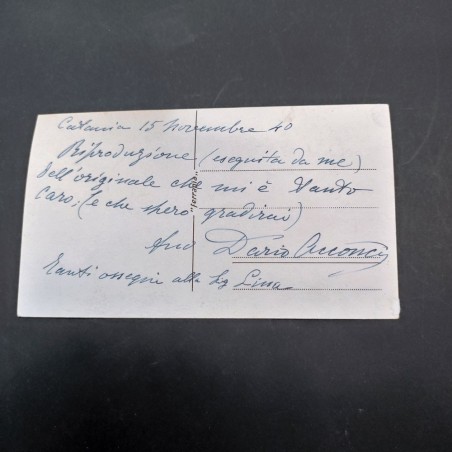 Catania 15 Novembre 40
Riproduzione (eseguita da me)
dell'originale che mi è tanto
caro; (e che spero gradirai)
tuo Dario
Tanti ossequi alla Sig Lina
"Ferrania"